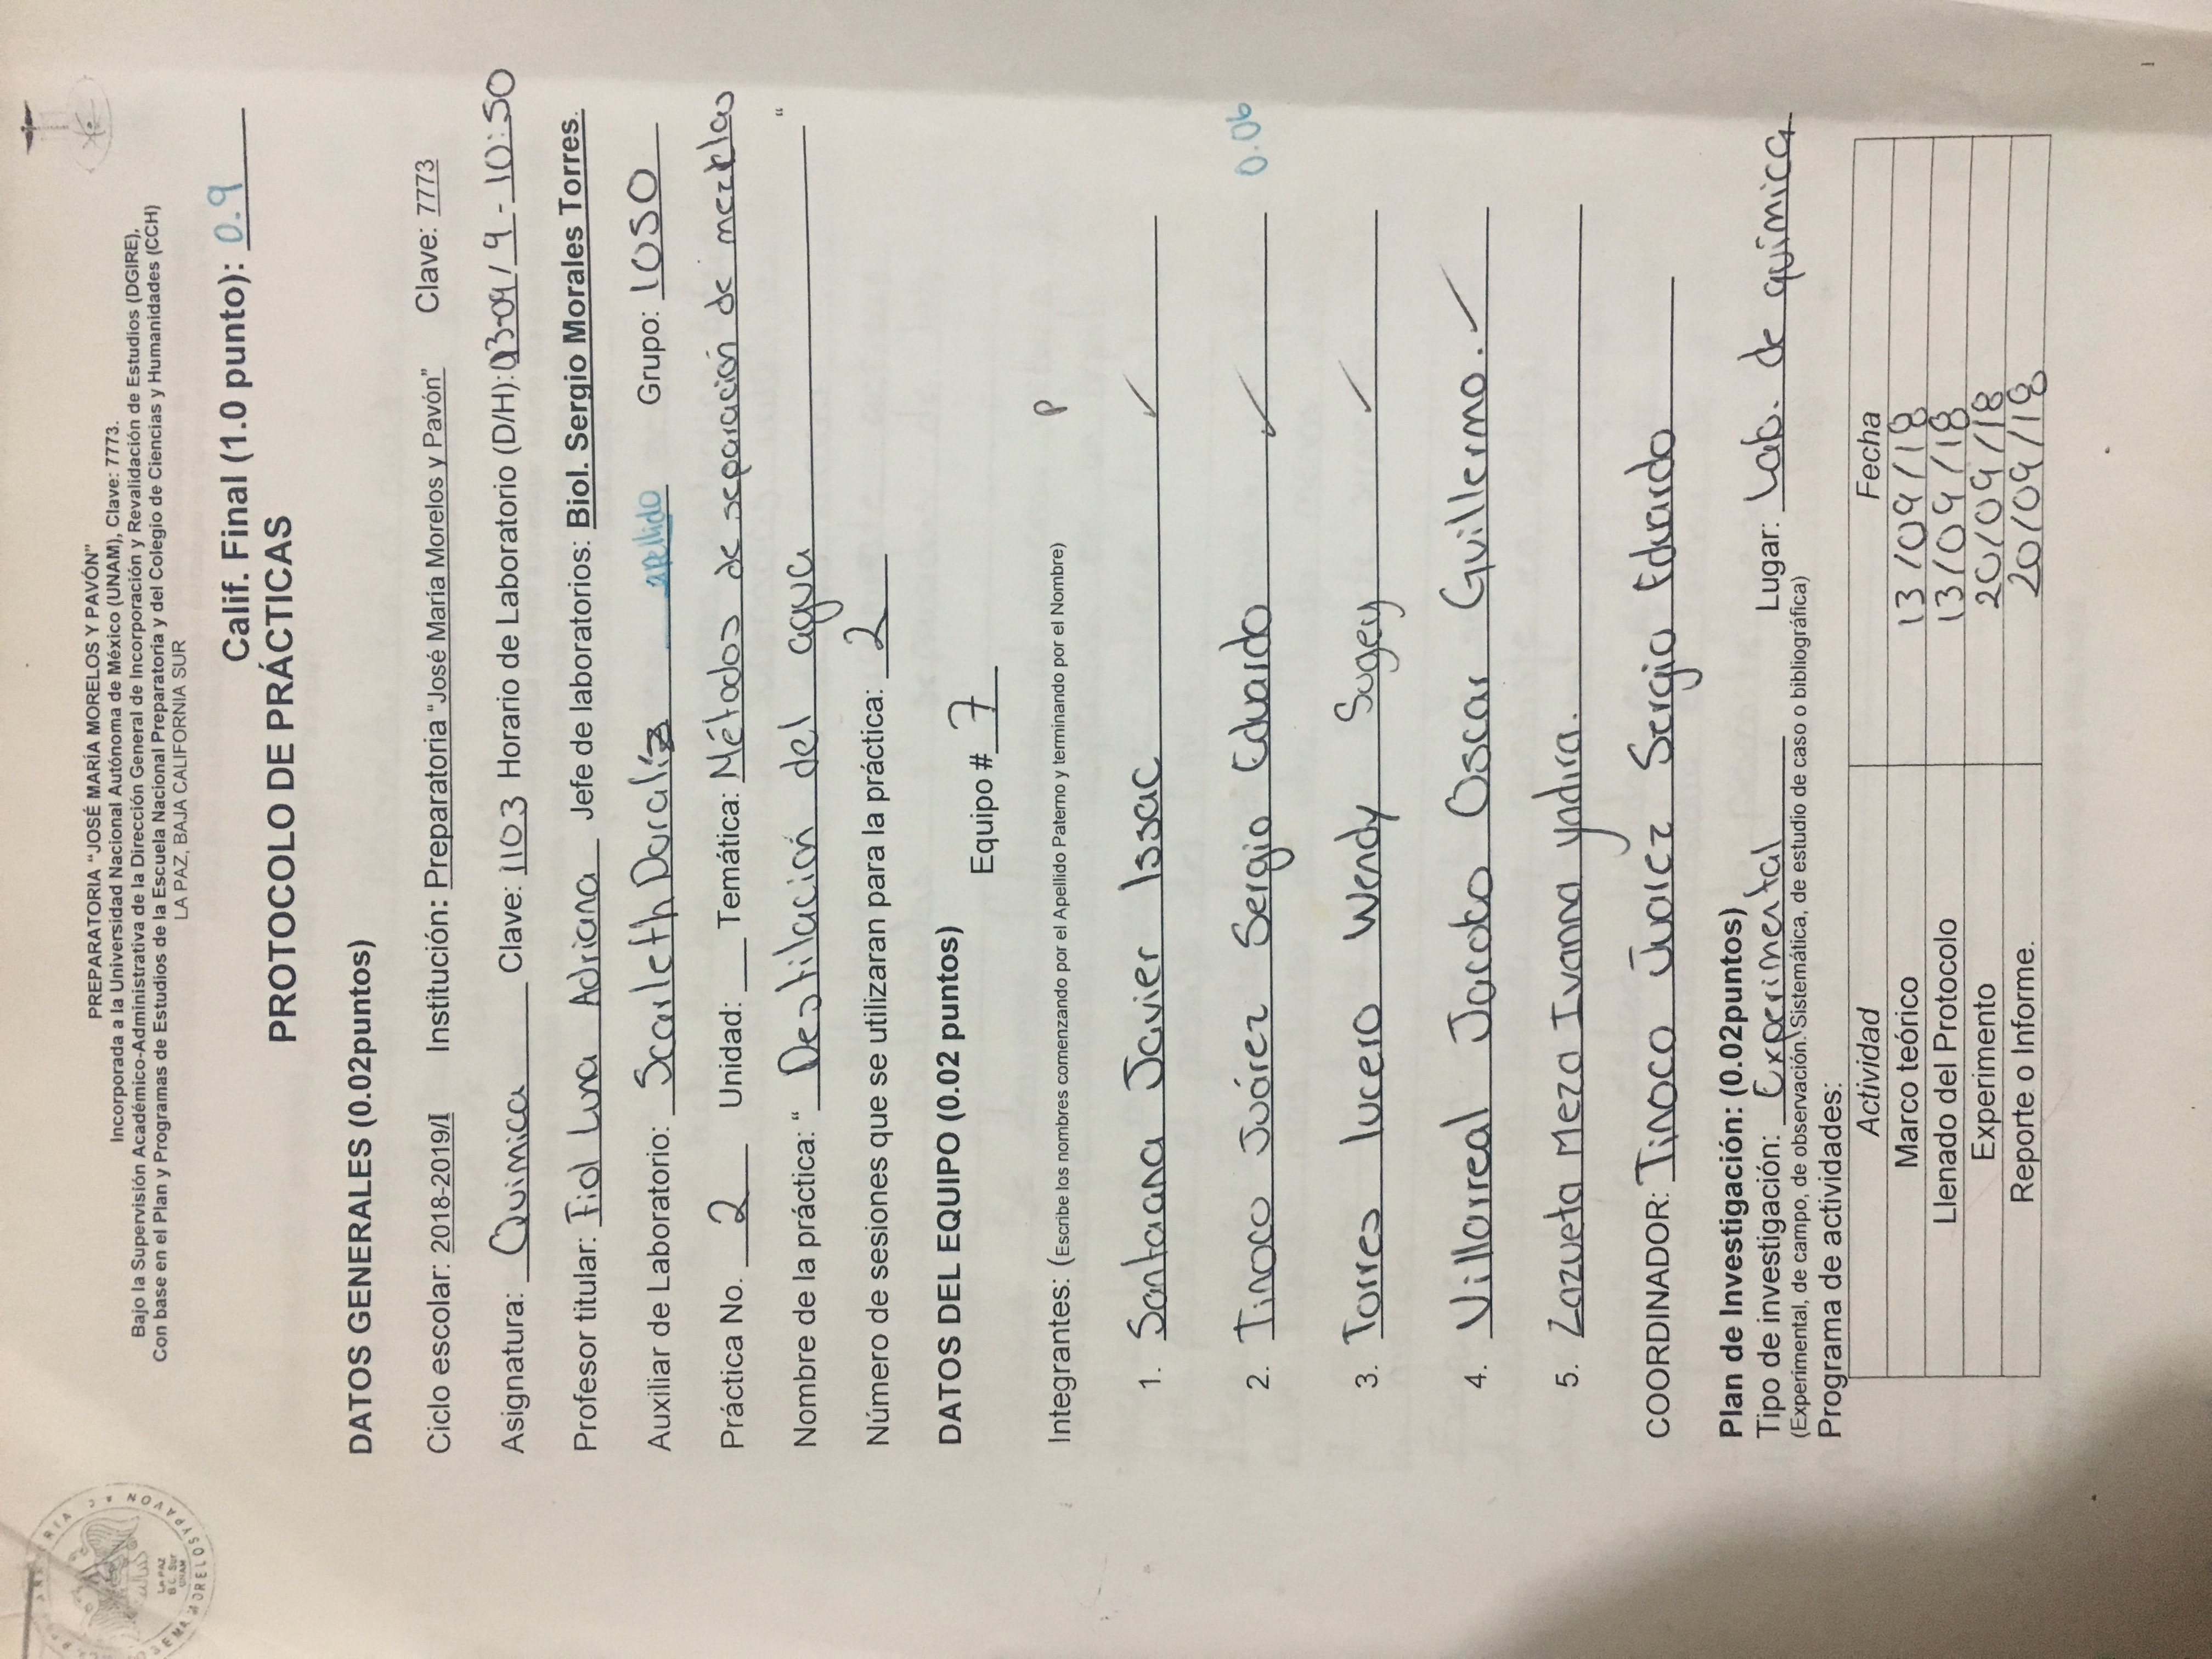 PREPARATORIA "JOSÉ MARÍA MORELOS Y PAVÓN"
Incorporada a la Universidad Nacional Autónoma de México (UNAM), Clave: 7773.
Bajo la Supervisión Académico-Administrativa de la Dirección General de Incorporación y Revalidación de Estudios (DGIRE),
Con base en el Plan y Programas de Estudios de la Escuela Nacional Preparatoria y del Colegio de Ciencias y Humanidades (CCH)
LA PAZ, BAJA CALIFORNIA SUR
Calif. Final (1.0 punto): 0.9
PROTOCOLO DE PRÁCTICAS
DATOS GENERALES (0.02puntos)
Ciclo escolar: 2018-2019/I Institución: Preparatoria "José María Morelos y Pavón" Clave: 7773
Asignatura: Quimica Clave: 1103 Horario de Laboratorio (D/H): 03-09/9-10:50
Profesor titular: Fiol Luna Adriana Jefe de laboratorios: Biol. Sergio Morales Torres.
Auxiliar de Laboratorio: Scarleth Daralís apellido Grupo: 1050
Práctica No. 2 Unidad: Temática: Métodos de separación de mezclas
Nombre de la práctica: " Destilación del agua "
Número de sesiones que se utilizaran para la práctica: 2
DATOS DEL EQUIPO (0.02 puntos)
Equipo # 7
Integrantes: (Escribe los nombres comenzando por el Apellido Paterno y terminando por el Nombre) P
1. Santaana Javier Issac
2. Tinoco Juárez Sergio Eduardo 0.06
3. Torres lucero Wendy Sugey
4. Villarreal Jacobo Oscar Guillermo.
5. Zazueta Meza Ivanna yadira.
COORDINADOR: Tinoco Juarez Sergio Eduardo
Plan de Investigación: (0.02puntos)
Tipo de investigación: Experimental Lugar: Lab. de quimica
(Experimental, de campo, de observación. Sistemática, de estudio de caso o bibliográfica)
Programa de actividades:
Actividad Fecha
Marco teórico 13/09/18
Llenado del Protocolo 13/09/18
Experimento 20/09/18
Reporte o Informe. 20/09/18
1